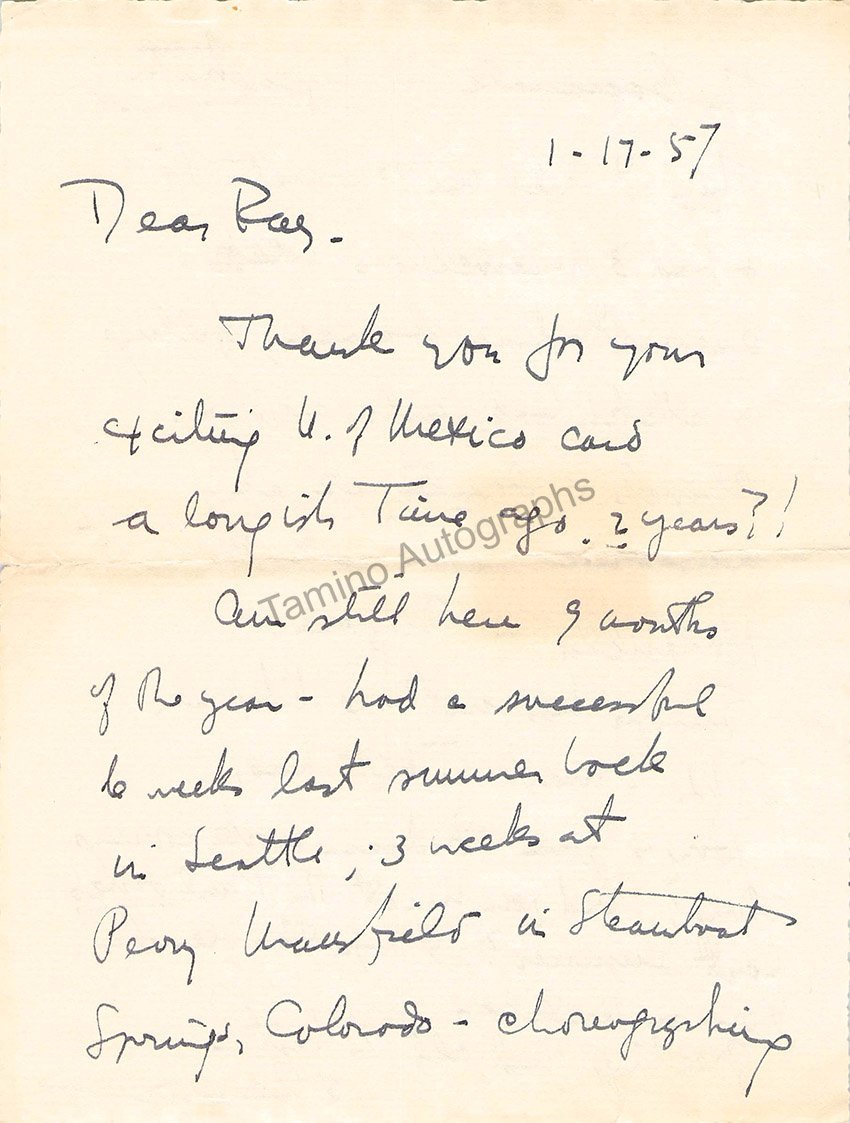 1-17-57
Dear Ray.
Thank you for your
exciting U. of Mexico card
a longish Time ago. 2 years?!
Am still here 9 months
of the year - had a successful
6 weeks last summer back
in Seattle, 3 weeks at
Perry Mansfield in Steamboat
Springs, Colorado - choreographing
Tamino Autographs